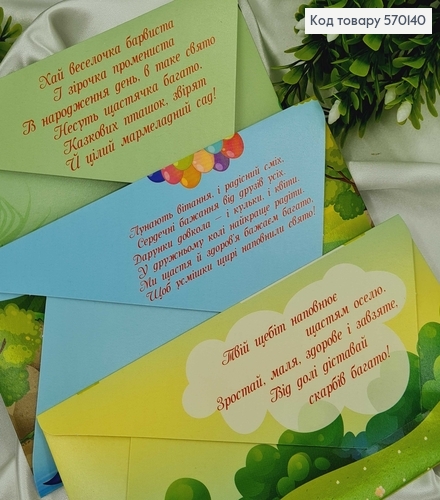 Код товару 570140
Хай веселочка барвиста
І зірочка промениста
В народження день, в таке свято
Несуть щастячка багато.
Казкових пташок, звірят
Й цілий мармеладний сад!
Лунають вітання, і радісний сміх,
Сердечні бажання від друзів усіх.
Дарунки довкола – і кульки, і квіти,
У дружньому колі найкраще радіти.
Ми щастя й здоров'я бажаєм багато,
Щоб усмішки щирі наповнили свято!
Твій щебіт наповнює
щастям оселю.
Зростай, маля, здорове і завзяте,
Від долі діставай
скарбів багато!